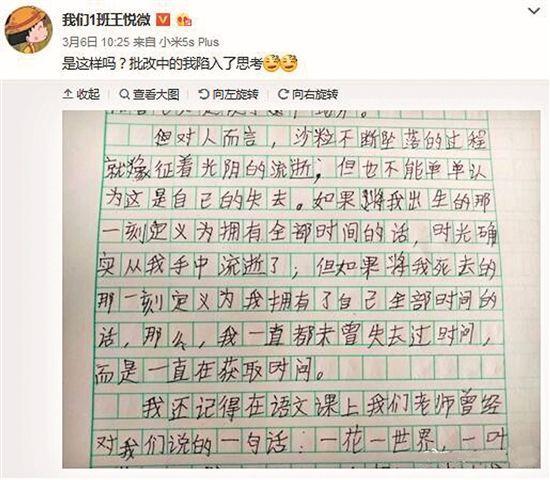 我们1班王悦微
3月6日 10:25 来自 小米5s Plus
是这样吗？批改中的我陷入了思考
收起 查看大图 向左旋转 向右旋转
但对人而言，沙粒不断坠落的过程
就像征着光阴的流逝；但也不能单单认
为这是自己的失去。如果将我出生的那
一刻定义为拥有全部时间的话，时光确
实从我手中流逝了，但如果将我死去的
那一刻定义为我拥有了自己全部时间的
话，那么，我一直都未曾失去过时间，
而是一直在获取时间。
我还记得在语文课上我们老师曾经
对我们说的一句话：一花一世界，一叶